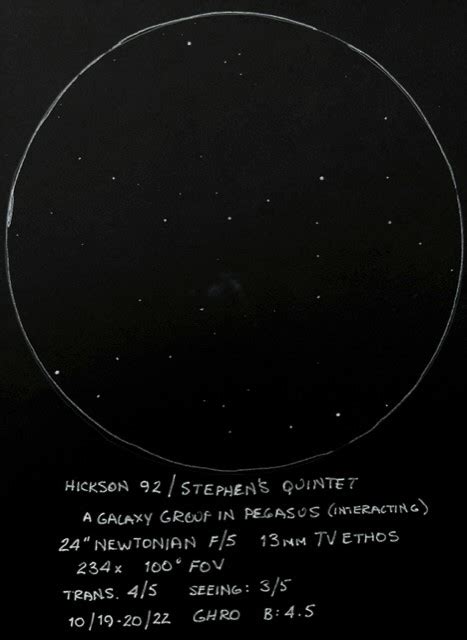 HICKSON 92 / STEPHEN'S QUINTET
A GALAXY GROUP IN PEGASUS (INTERACTING)
24" NEWTONIAN F/5 13MM TV ETHOS
234x 100° FOV
TRANS. 4/5 SEEING: 3/5
10/19-20/22 GHRO B: 4.5